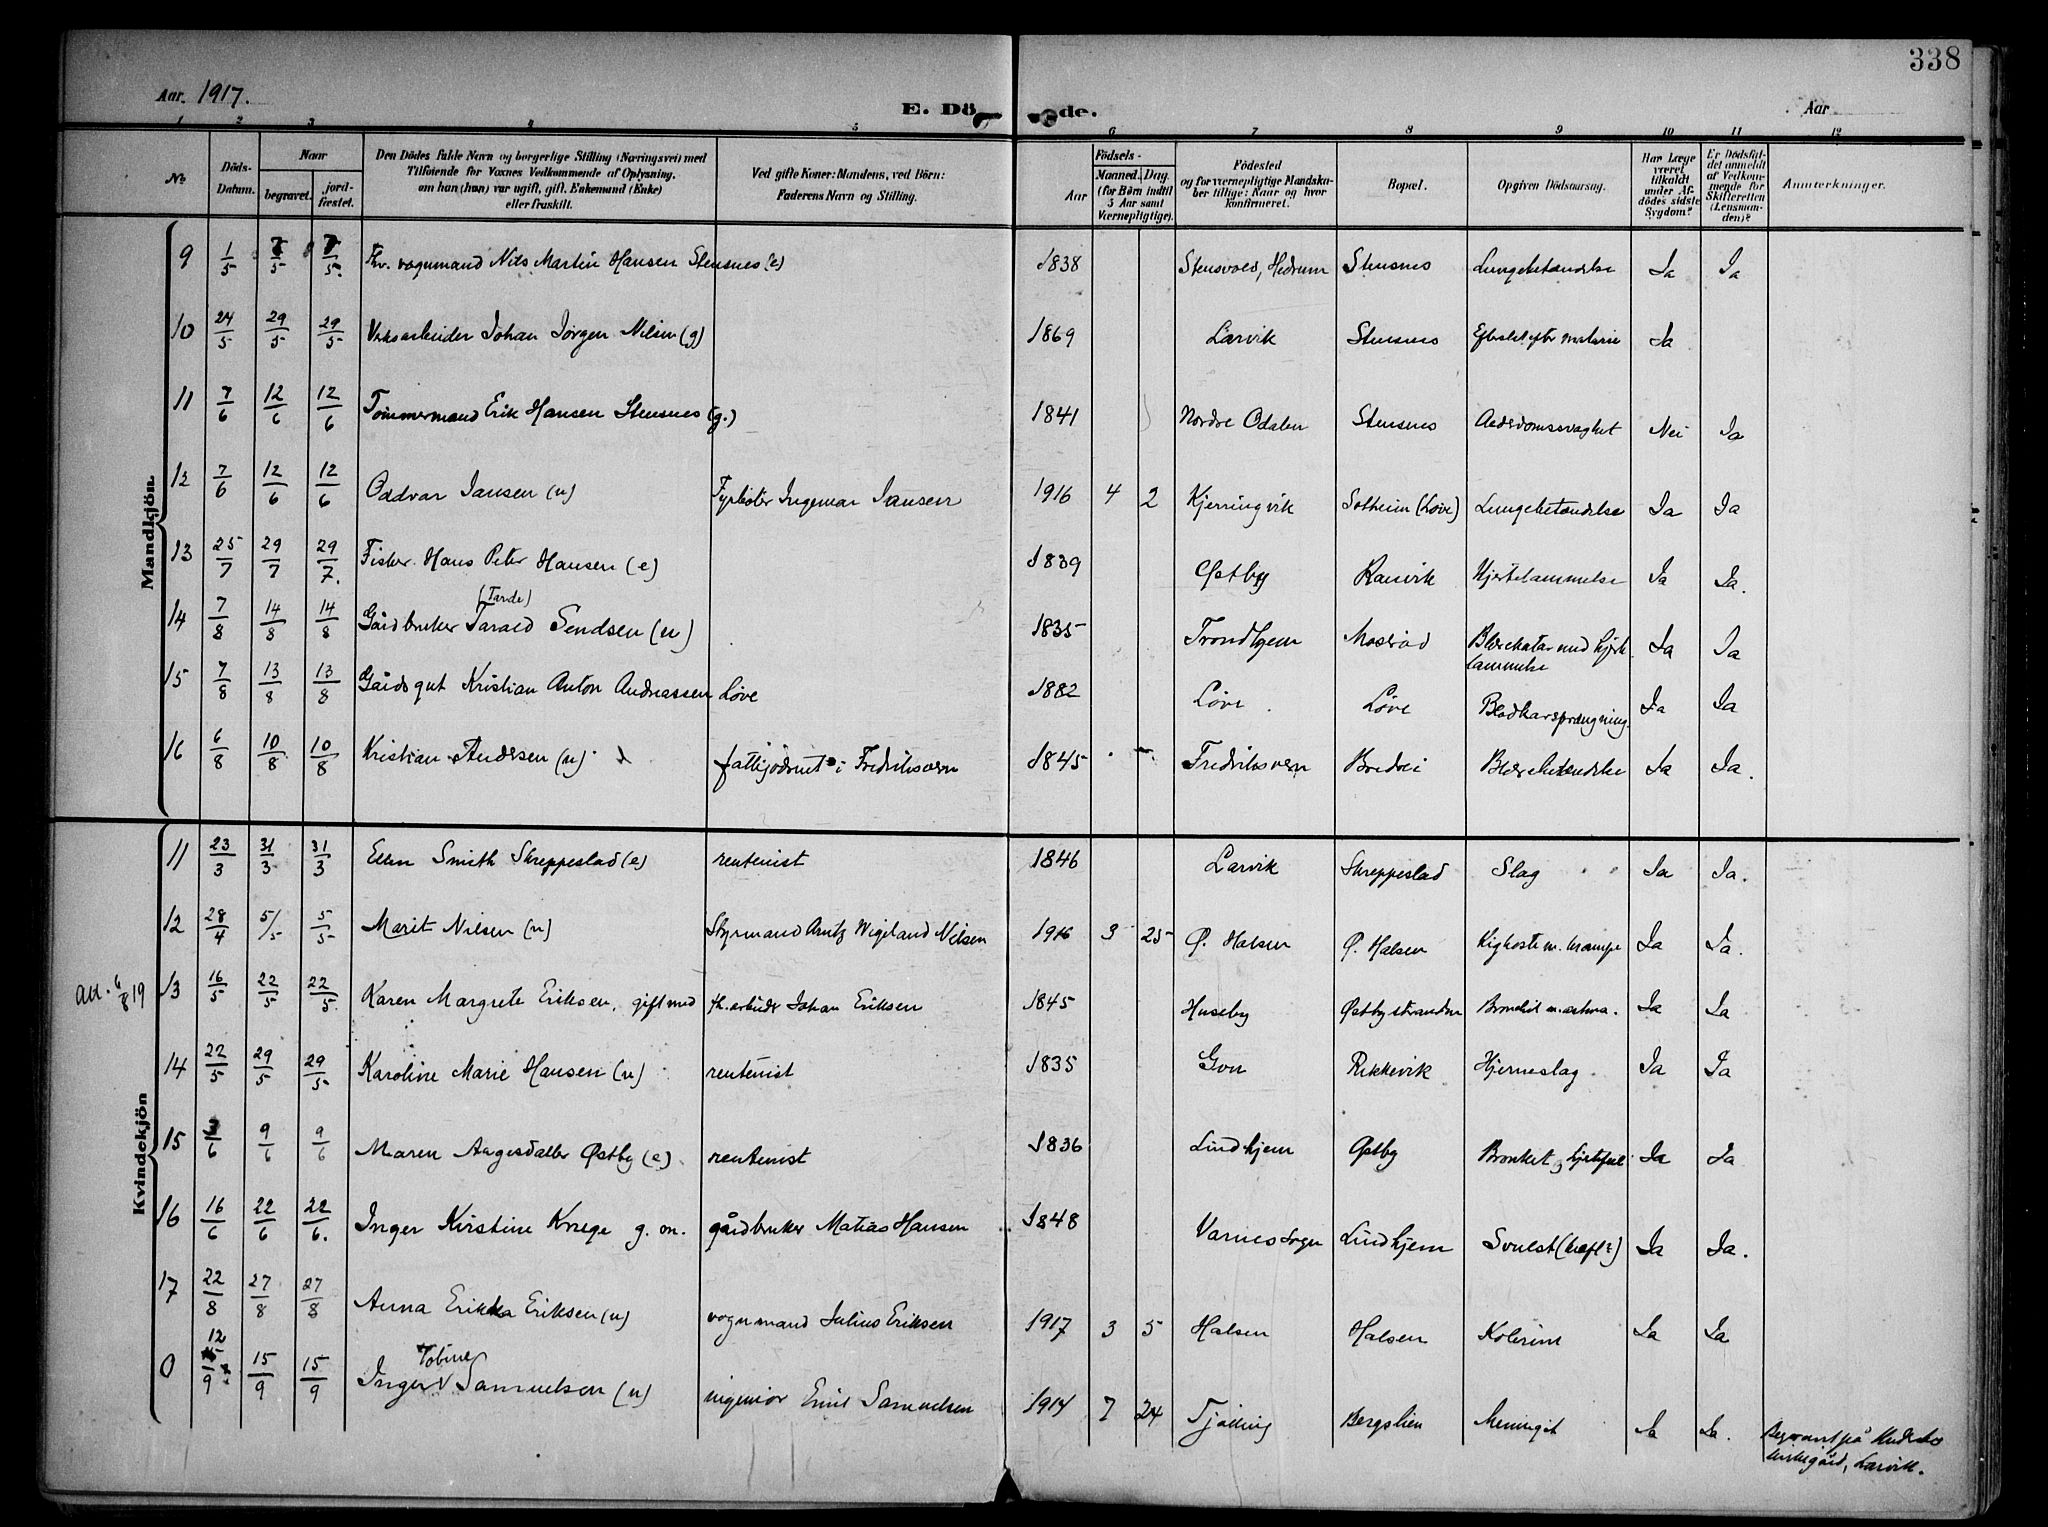 338
Aar. 1917.
E. Dö de.
Aar
1 2 3 4 5 6 7 8 9 10 11 12
No
Döds-Datum.
Naar
begravet.
jord-fæstet.
Den Dödes fulde Navn og borgerlige Stilling (Næringsvei) med
Tilföiende for Voxnes Vedkommende af Oplysning,
om han (hun) var ugift, gift, Enkemand (Enke)
eller fraskilt.
Ved gifte Koner: Mandens, ved Börn:
Faderens Navn og Stilling.
Födsels-
Aar
Maaned. Dag.
(for Börn indtil
5 Aar samt
Værnepligtige).
Födested
og for værnepligtige Mandska-
ber tillige: Naar og hvor
konfirmeret.
Bopæl.
Opgiven Dödsaarsag.
Har Læge
været
tilkaldt
under Af-
dödes sidste
Sygdom?
Er Dödsfal-
det anmeldt
af Vedkom-
mende for
Skifteretten
(Lensman-
den)?
Anmærkninger.
Mandkjön.
9 1/5 7/5 7/5 Fhv. vognmand Nils Martin Hansen Stensnes (e) 1838 Stensvold, Hedrum Stensnes Lungebetændelse Ja Ja
10 24/5 29/5 29/5 Verksarbeider Johan Jörgen Nilsen (g) 1869 Larvik Stensnes efter malaria Ja
11 7/6 12/6 12/6 Tömmermand Erik Hansen Stensnes (g.) 1841 Nordre Odalen Stensnes Alderdomssvaghet Nei Ja
12 7/6 12/6 12/6 Oddvar Jansen (u) Fyrböter Ingemar Jansen 1916 4 2 Kjerringvik Solheim (Löve) Lungebetændelse Ja Ja
13 25/7 29/7 29/7. Fisker Hans Peter Hansen (e) 1839 Östby Ranvik Hjertelammelse Ja Ja.
(Tande)
14 7/8 14/8 14/8 Gårdbruker Tarald Sendsen (u) 1835 Trondhjem Moserød Blærekatar med hjerte-
lammelse Ja Ja
15 7/8 13/8 13/8 Gårdsgut Kristian Anton Andreassen Löve 1882 Löve Löve Blodkarsprængning Ja Ja
16 6/8 10/8 10/8 Kristian Andersen (u) i Fredriksvern 1845 Fredriksvern Bredvei Blærebetændelse Ja Ja.
Kvindekjön
11 23/3 31/3 31/3 Ellen Smith Skreppestad (e) rentenist 1846 Larvik Skreppestad Slag Ja Ja.
12 28/4 5/5 5/5 Marit Nilsen (u) Styrmand Arntz Wigeland Nilsen 1916 3 25 Ø. Halsen Ø. Halsen Kighoste m. krampe Ja Ja.
att. 6/8 19
13 16/5 22/5 22/5. Karen Margrete Eriksen, gift med fh. arbeider Johan Eriksen 1845 Huseby Östbystranden Bronchit m. astma. Ja Ja
14 22/5 29/5 29/5 Karoline Marie Hansen (u) rentenist 1835 Gon Rekkevik Hjerneslag Ja Ja
15 3/6 9/6 9/6 Maren Aagesdatter Östby (e) rentenist 1836 Lindhjem Östby Bronket, hjertefeil Ja Ja
16 16/6 22/6 22/6. Inger Kirstine Krege g. m. gårdbruker Matias Hansen 1848 Varnes sogn Lindhjem Svulst (kræft?) Ja Ja.
17 22/8 27/8 27/8 Anna Erikka Eriksen (u) vognmand Julius Eriksen 1917 3 5 Halsen Halsen Kolerine Ja Ja
Tobine
0 12/9 15/9 15/9 Inger Samuelsen (u) ingeniör Emil Samuelsen 1914 7 24 Tjölling Bergslien Meningit Ja Ja. Begravet på Undersbo
kirkegård, Larvik.